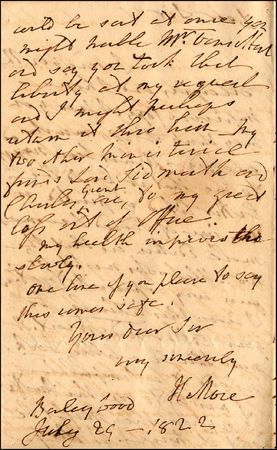 could be sent at once you
might trouble Mr.
and say you took that
liberty at my request
and I might perhaps
return it thro him — my
two other ministerial
friends Lord Sidmouth and
Charles Grant are, to my great
loss out of office.
my health improves tho
slowly.
one line if you please to say
this comes safe.
Yours Dear Sir
very sincerely
H More
Barley Wood
July 29 — 1822